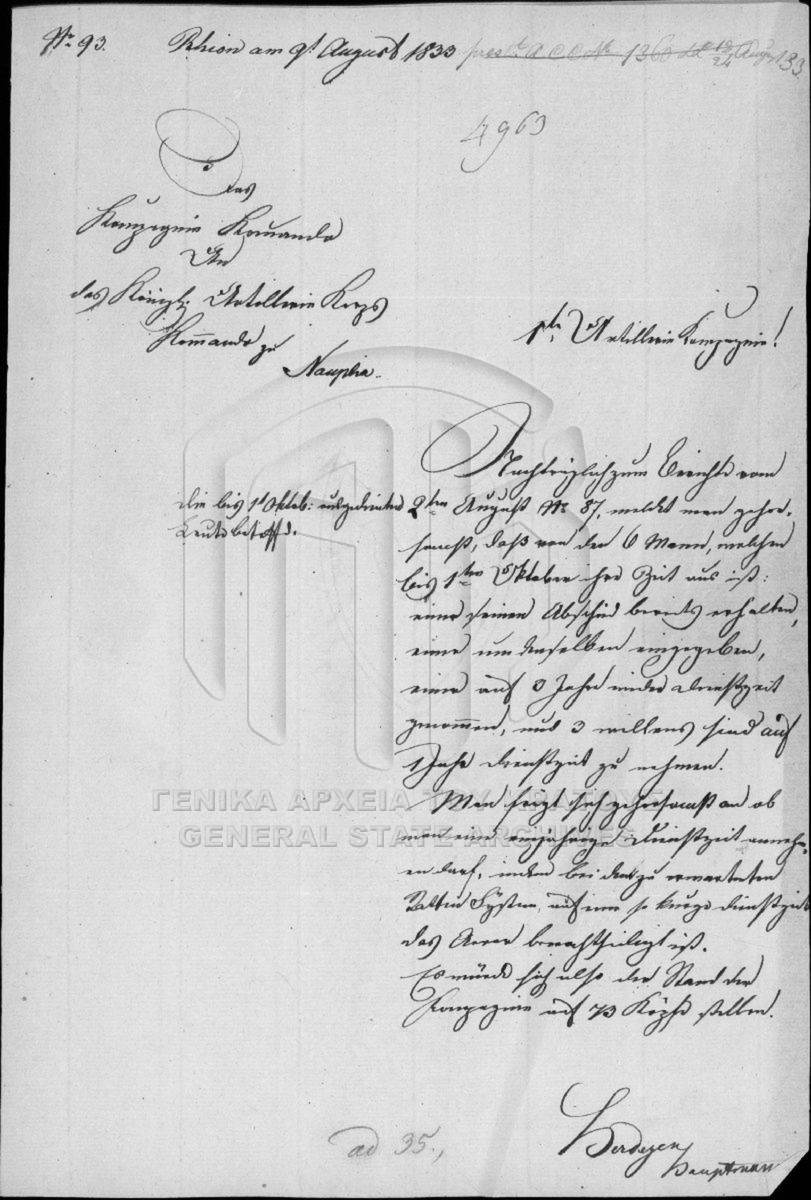 Nr. 93. Rhion am 9t August 1833 pres. A C C Nr 1360 d 12/24 Aug. 33
4963
Das
Kompagnie Komando
An
das Königl: Artillerie Korps
Kommando zu
Nauplia.
1te Artillerie Kompagnie!
Die bis 1t Oktob: ausgedienten
Leute betreffd.
Nachträglich zum Berichte vom
2ten August Nr 87, meldet man gehor-
samst, daß von den 6 Mann, welchen
bis 1ten Oktober ihre Zeit aus ist:
einer seinen Abschied bereits erhalten,
einer um denselben eingegeben,
einer auf 3 Jahre wieder Dienstzeit
genommen, und 3 willens sind auf
1 Jahr Dienstzeit zu nehmen.
Man fragt sich gehorsamst an ob
man eine einjährige Dienstzeit anneh-
men darf, indem bei dem zu erwartenden
System, auf eine so kurze Dienstzeit
das Aerar benachtheiligt ist.
Es würde sich also der Stand der
Kompagnie auf 73 Köpfe stellen.
Hauptmann
ad 35.,
ΓΕΝΙΚΑ ΑΡΧΕΙΑ ΤΟΥ ΚΡΑΤΟΥΣ
GENERAL STATE ARCHIVES